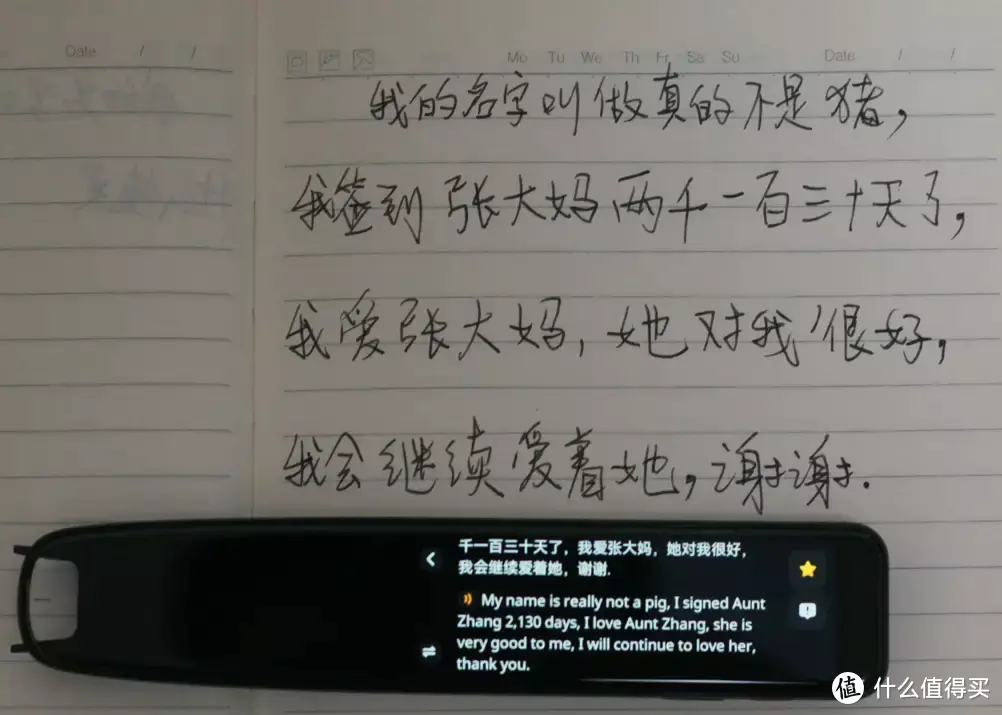 Date / /
Mo Tu We Th Fr Sa Su Date / /
我的名字叫做真的不是猪，
我签到张大妈两千一百三十天了，
我爱张大妈，她对我很好，
我会继续爱着她，谢谢.
千一百三十天了，我爱张大妈，她对我很好，
我会继续爱着她，谢谢.
My name is really not a pig, I signed Aunt
Zhang 2,130 days, I love Aunt Zhang, she is
very good to me, I will continue to love her,
thank you.
值 什么值得买